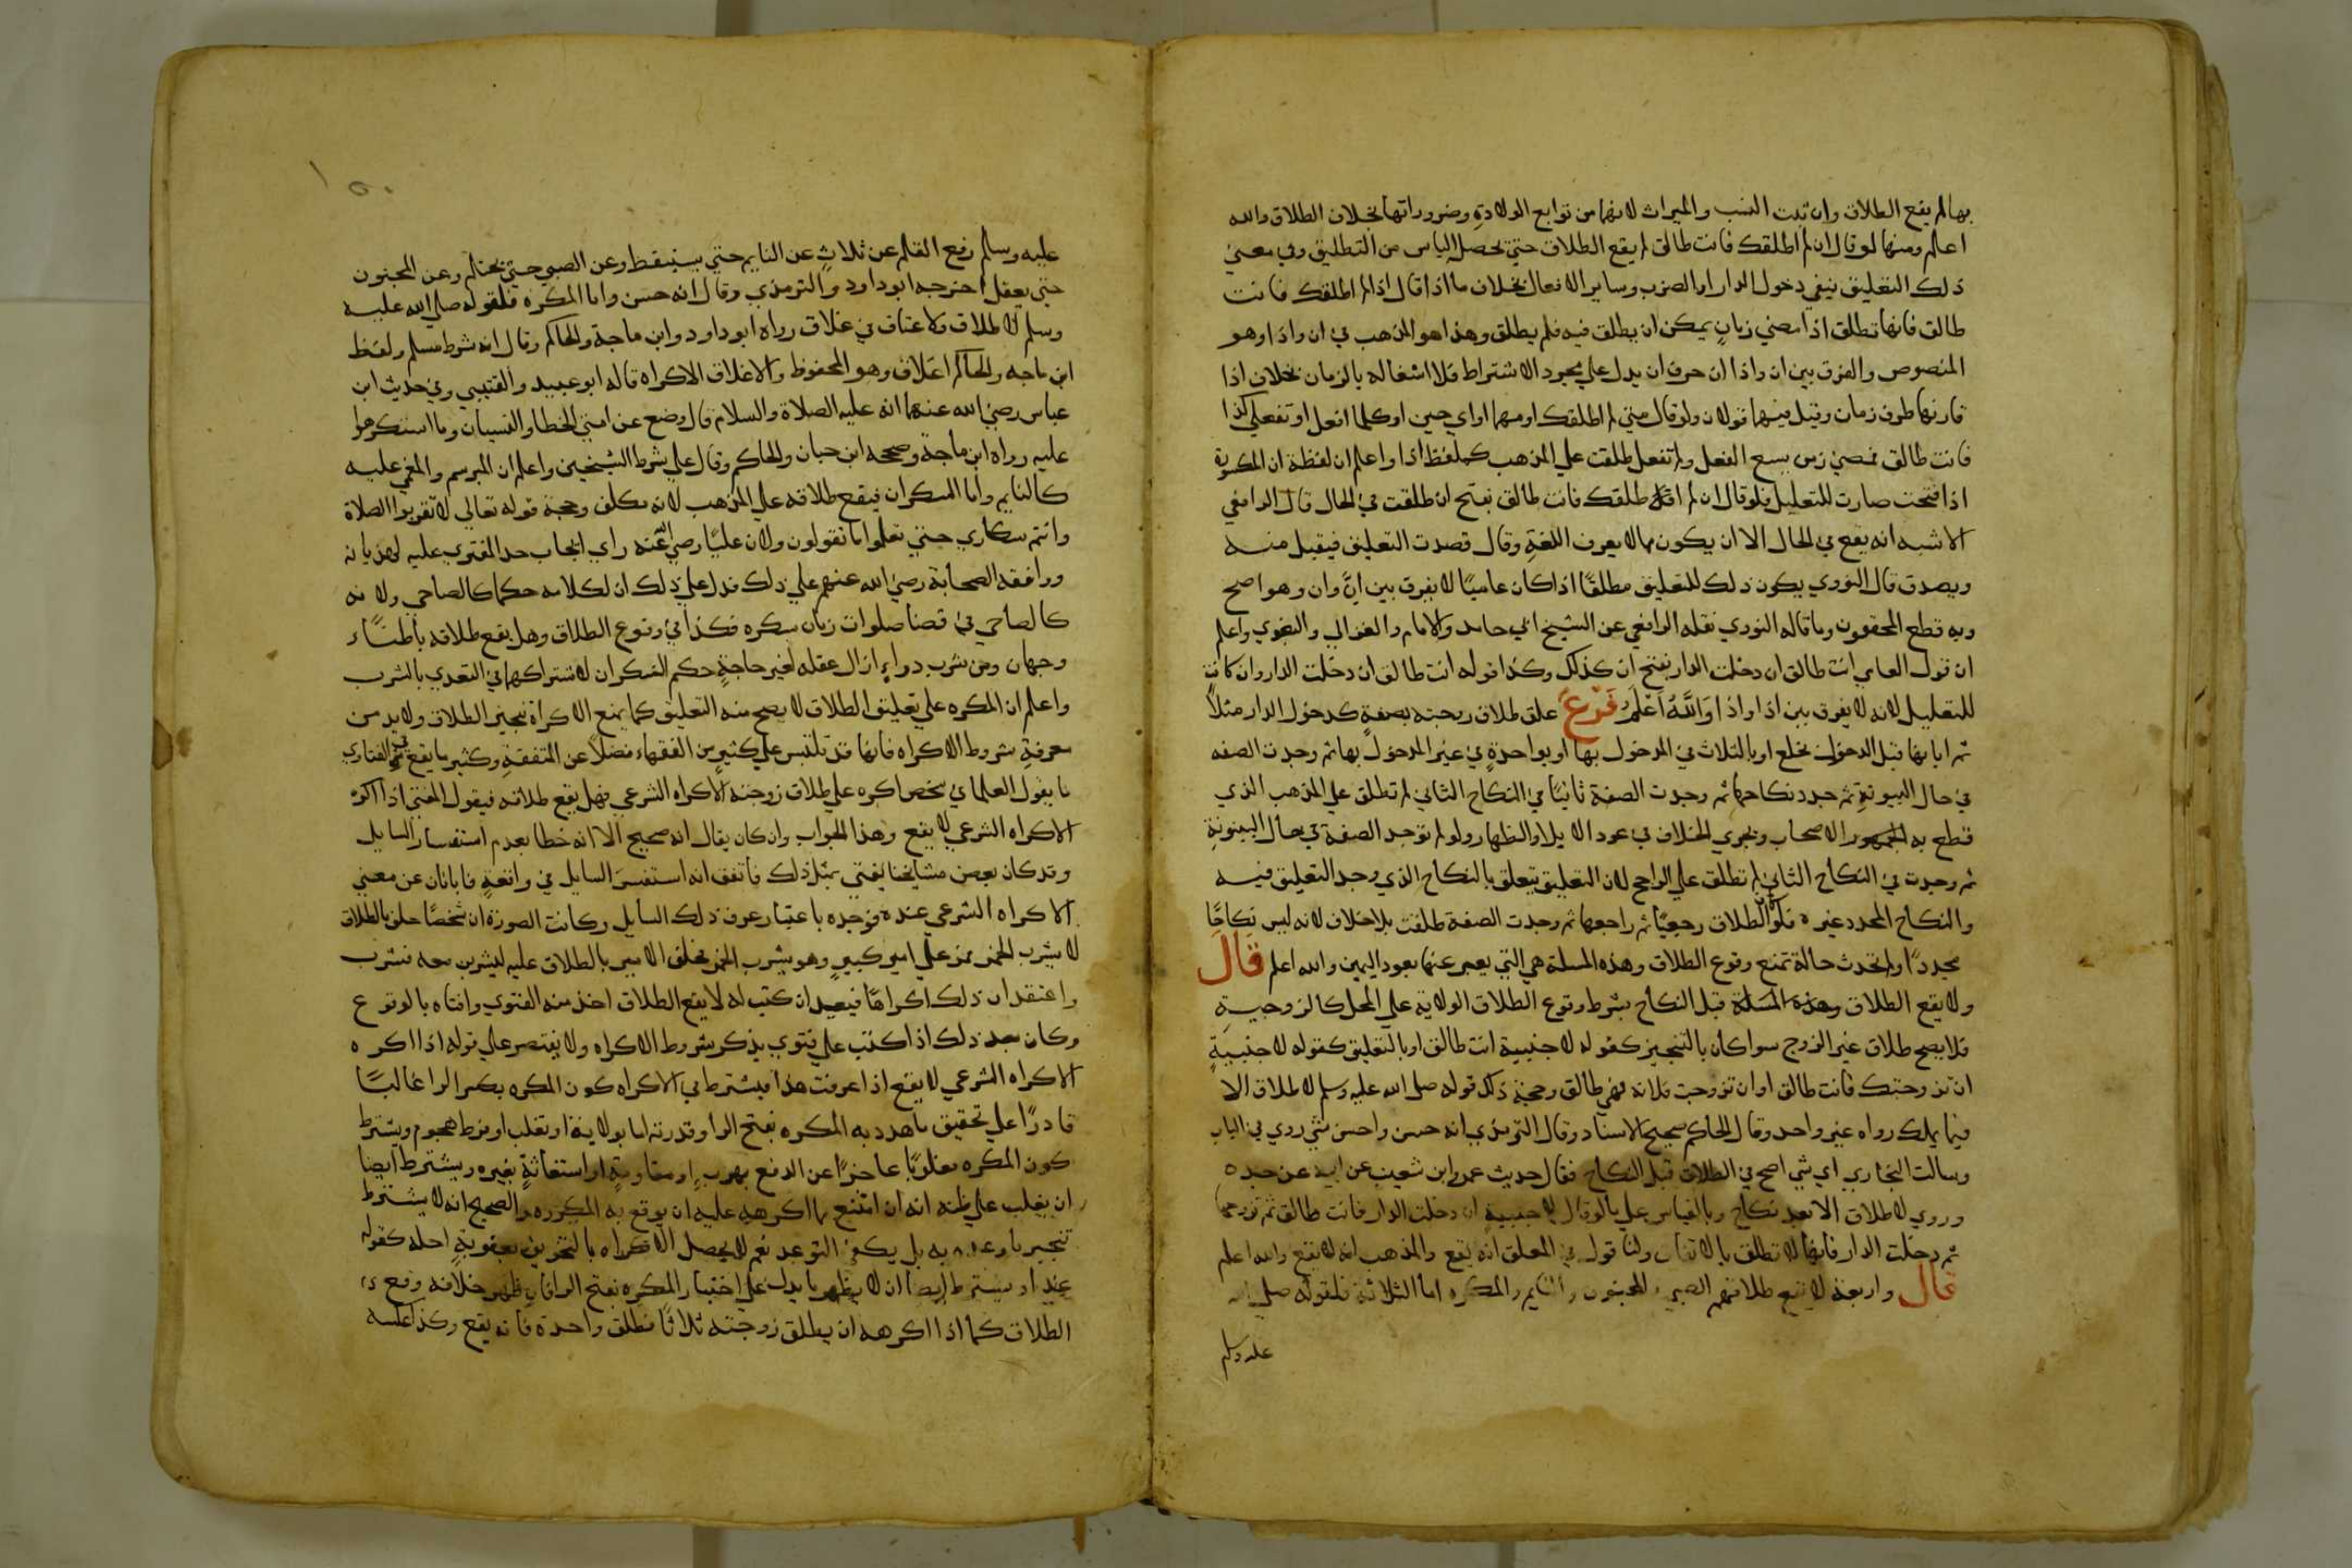 بها لم يقع الطلاق وان ثبت النسب والميراث لانهما من توابع الولادة وضروراتها بخلاف الطلاق والله
اعلم ومنها لو قال ان لم اطلقك فانت طالق لم يقع الطلاق حتي يحصل الياس من التطليق وفي معني
ذلك التعليق بنفي دخول الدار او الضرب وساير الافعال بخلاف ما اذا قال اذا لم اطلقك فانت
طالق فانها تطلق اذا مضي زمان يمكن ان يطلق فيه فلم يطلق وهذا هو المذهب في ان واذا وهو
المنصوص والفرق بين ان واذا ان حرف ان يدل علي مجرد الاشتراط فلا اشعار له بالزمان بخلاف اذا
فانها ظرف زمان وقيل فيهما قولان ولو قال متي لم اطلقك او مهما او اي حين او كلما لم افعل او تفعلي كذا
فانت طالق فمضي زمن يسع الفعل ولم تفعل طلقت علي المذهب كلفظ اذا واعلم ان لفظة ان المكسورة
اذا فتحت صارت للتعليل فلو قال ان لم اطلقك فانت طالق بفتح ان طلقت في الحال قال الرافعي
الاشبه انه يقع في الحال الا ان يكون ممن لا يعرف اللغة وقال قصدت التعليق فيقبل منه
ويصدق قال النووي يكون ذلك للتعليق مطلقا اذا كان عاميا لا يفرق بين ان وان وهو اصح
وبه قطع المحققون وما قاله النووي نقله الرافعي عن الشيخ ابي حامد والامام والغزالي والبغوي واعلم
ان قول العامي انت طالق ان دخلت الدار بفتح ان كذلك وكذا قوله انت طالق ان دخلت الدار وان كانت
للتعليل لانه لا يفرق بين اذا واذا والله اعلم فرع علق طلاق زوجته بصفة كدخول الدار مثلا
ثم ابانها قبل الدخول بخلع او بالثلاث في المدخول بها او بواحدة في غير المدخول بها ثم وجدت الصفه
في حال البينونة ثم جدد نكاحها ثم وجدت الصفة ثانيا في النكاح الثاني لم تطلق علي المذهب الذي
قطع به الجمهور الاصحاب ويجري الخلاف في عود الايلا والظهار ولو لم توجد الصفة في حال البينونة
ثم وجدت في النكاح الثاني لم تطلق علي الراجح لان التعليق يتعلق بالنكاح الذي وجد التعليق فيه
والنكاح المجدد غيره فلو كان الطلاق رجعيا ثم راجعها ثم وجدت الصفة طلقت بلا خلاف لانه ليس نكاحا
مجددا ولم تحدث حالة تمنع وقوع الطلاق وهذه المسلة هي التي يعبر عنها بعود اليمين والله اعلم قال
ولا يقع الطلاق قبل النكاح بشرط وقوع الطلاق الولاية علي المحل كالزوجية
فلا يصح طلاق غير الزوج سوا كان بالتنجيز كقوله لاجنبية انت طالق او بالتعليق كقوله لاجنبية
ان تزوجتك فانت طالق او ان تزوجت فلانه فهي طالق وحجة ذلك قوله صلى الله عليه وسلم لا طلاق الا
فيما يملك رواه غير واحد وقال الحاكم صحيح الاسناد وقال الترمذي انه حسن واحسن شي روي في الباب
وسالت البخاري اي شي اصح في الطلاق قبل النكاح فقال حديث عمرو ابن شعيب عن ابيه عن جده
وروي لا طلاق الا بعد نكاح وبالقياس علي ما لو قال لاجنبية ان دخلت الدار فانت طالق ثم تزوجها
ثم دخلت الدار فانها لا تطلق بالاتفاق ولنا قول في المعلق انه يقع والمذهب انه لا يقع والله اعلم
قال واربعة لا يقع طلاقهم الصبي والمجنون والنايم والمكره اما الثلاثة فلقوله صلى الله
عليه وسلم
١٥٠
عليه وسلم رفع القلم عن ثلاث عن النايم حتي يستيقظ وعن الصبي حتي يحتلم وعن المجنون
حتي يعقل اخرجه ابو داود والترمذي وقال انه حسن واما المكره فلقوله صلي الله عليه
وسلم لا طلاق ولا عتاق في غلاق رواه ابو داود وابن ماجة والحاكم وقال انه شرط مسلم ولفظ
ابن ماجه والحاكم اغلاق وهو المحفوظ والاغلاق الاكراه قاله ابو عبيد والقتيبي وفي حديث ابن
عباس رضي الله عنهما انه عليه الصلاة والسلام قال وضع عن امتي الخطا والنسيان وما استكرهوا
عليه رواه ابن ماجة وصححه ابن حبان والحاكم وقال علي شرط الشيخين واعلم ان المبرسم والمغمي عليه
كالنايم واما السكران فيقع طلاقه علي المذهب لانه مكلف وحجة قوله تعالي لا تقربوا الصلاة
وانتم سكاري حتي تعلموا ما تقولون ولان عليا رضي الله عنه راي ايجاب حد المفتري عليه لهذيانه
ووافقه الصحابة رضي الله عنهم علي ذلك فدل علي ذلك ان لكلامه حكما كالصاحي ولانه
كالصاحي في قضا صلوات زمان سكره فكذا في وقوع الطلاق وهل يقع طلاقه باطنا
وجهان ومن شرب دواء ازال عقله لغير حاجة حكم السكران لاشتراكهما في التعدي بالشرب
واعلم ان المكره علي تعليق الطلاق لا يصح منه التعليق كما يمنع الاكراه تنجيز الطلاق ولا بد من
معرفة شروط الاكراه فانها قد تلتبس علي كثير من الفقهاء فضلا عن المتفقة وكثير ما يقع في الفتاوي
ما يقول العلما في شخص اكره علي طلاق زوجته الاكراه الشرعي فهل يقع طلاقه فيقول المفتي اذا اكره
الاكراه الشرعي لا يقع وهذا الجواب وان كان يقال انه صحيح الا انه خطا بعدم استفسار السايل
وقد كان بعض مشايخنا يفتي بمثل ذلك فاتفق انه استفسر السايل في واقعة فابانان عن معني
الاكراه الشرعي عنده فوجده باعتبار عرف ذلك السايل وكانت الصورة ان شخصا حلف بالطلاق
لا يشرب الخمر فمر علي امير كبير وهو يشرب الخمر فحلف الامير بالطلاق عليه ليشربن معه فشرب
واعتقد ان ذلك اكراها فبعد ان كتب له لا يقع الطلاق اخذ منه الفتوي وافتاه بالوقوع
وكان بعد ذلك اذا كتب علي فتوي يذكر شروط الاكراه ولا يقتصر علي قوله اذا اكره
الاكراه الشرعي لا يقع اذا عرفت هذا فيشترط في الاكراه كون المكره بكسر الرا غالبا
قادرا علي تحقيق ما هدد به المكره بفتح الرا وقدرته اما بولاية او تغلب او فرط هجوم ويشترط
كون المكره مغلوبا عاجزا عن الدفع بهرب او مقاومة او استغاثة بغيره ويشترط ايضا
ان يغلب علي ظنه انه ان امتنع مما اكرهه عليه ان يوقع به المكروه والصحيح انه لا يشترط
تنجيز ما وعد به بل يكفي التوعد نعم لا يحصل الاكراه بالتخويف بعقوبة اجلة كقوله
غدا ويشترط ايضا ان لا يظهر ما يدل علي اختيار المكره بفتح الرا فان ظهر خلافه وقع
الطلاق كما اذا اكرهه ان يطلق زوجته ثلاثا فطلق واحدة فانه يقع وكذا عكسه